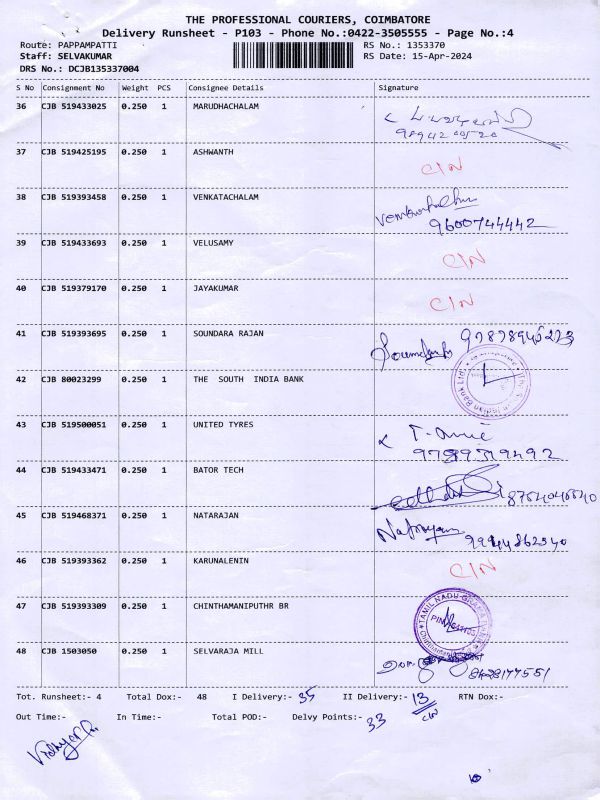 THE PROFESSIONAL COURIERS, COIMBATORE
Delivery Runsheet - P103 - Phone No.:0422-3505555 - Page No.:4
Route: PAPPAMPATTI RS No.: 1353370
Staff: SELVAKUMAR RS Date: 15-Apr-2024
DRS No.: DCJB135337004
S No Consignment No Weight PCS Consignee Details Signature
36 CJB 519433025 0.250 1 MARUDHACHALAM
37 CJB 519425195 0.250 1 ASHWANTH C/N
38 CJB 519393458 0.250 1 VENKATACHALAM
9600744442
39 CJB 519433693 0.250 1 VELUSAMY C/N
40 CJB 519379170 0.250 1 JAYAKUMAR C/N
41 CJB 519393695 0.250 1 SOUNDARA RAJAN
42 CJB 80023299 0.250 1 THE SOUTH INDIA BANK
43 CJB 519500051 0.250 1 UNITED TYRES
44 CJB 519433471 0.250 1 BATOR TECH
45 CJB 519468371 0.250 1 NATARAJAN Natarajan
46 CJB 519393362 0.250 1 KARUNALENIN C/N
47 CJB 519393309 0.250 1 CHINTHAMANIPUTHR BR TAMIL NADU GRAMA BANK
48 CJB 1503050 0.250 1 SELVARAJA MILL
Tot. Runsheet:- 4 Total Dox:- 48 I Delivery:- 35 II Delivery:- 13 RTN Dox:-
C/N
Out Time:- In Time:- Total POD:- Delvy Points:- 33